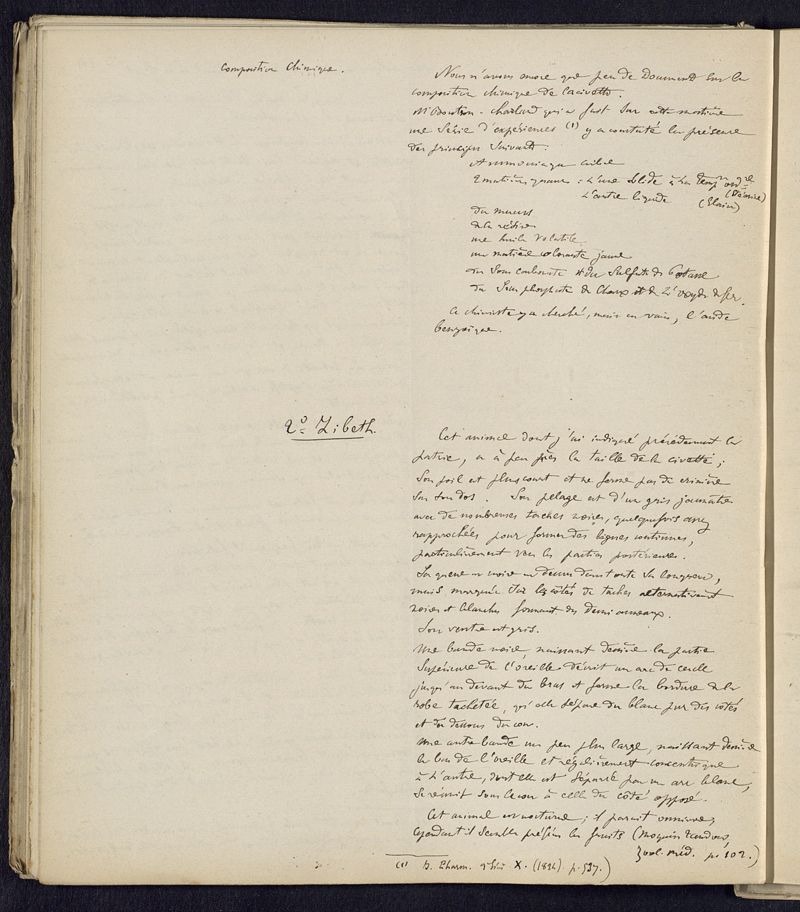 Composition Chimique.
Nous n'avons encore que peu de Documents sur la
composition chimique de la civette.
Mr Boutron-Charlard qui a fait sur cette matière
une Série d'expériences (1) y a constaté la présence
des principes suivants :
Ammoniaque libre
2 matières grasses : L'une solide à la temp. ord.
L'autre liquide (Elaïne)
du mucus
de la résine
une huile volatile
une matière colorante jaune
du Sous carbonate et du Sulfate de Potasse
du Sous phosphate de Chaux et de l'oxyde de fer.
Ce chimiste y a cherché, mais en vain, l'acide
benzoïque.
2° Zibeth.
Cet animal dont j'ai indiqué précédemment la
patrie, a à peu près la taille de la civette ;
Son poil est plus court et ne forme pas de crinière
sur son dos. Son pelage est d'un gris jaunâtre
avec de nombreuses taches noires, quelquefois assez
rapprochées pour former des lignes continues,
particulièrement vers les parties postérieures.
Sa queue est noire en dessus dans toute sa longueur,
mais marquée sur les côtés de taches alternativement
noires et blanches formant des demi anneaux.
Son ventre est gris.
Une bande noire, naissant derrière la partie
Supérieure de l'oreille décrit un arc de cercle
jusqu'au devant du bras et forme la bordure de la
robe tachetée, qu'elle sépare du blanc pur des côtés
et du dessous du cou.
Une autre bande un peu plus large, naissant derrière
le bas de l'oreille et régulièrement concentrique
à l'autre, dont elle est séparée par un arc blanc,
se réunit sous le cou à celle du côté opposé.
Cet animal est nocturne ; il paraît omnivore,
cependant il semble préférer les fruits (Moquin Tandon,
Zool. méd. p. 102.)
(1) J. Pharm. X. (1824). p. 537.)